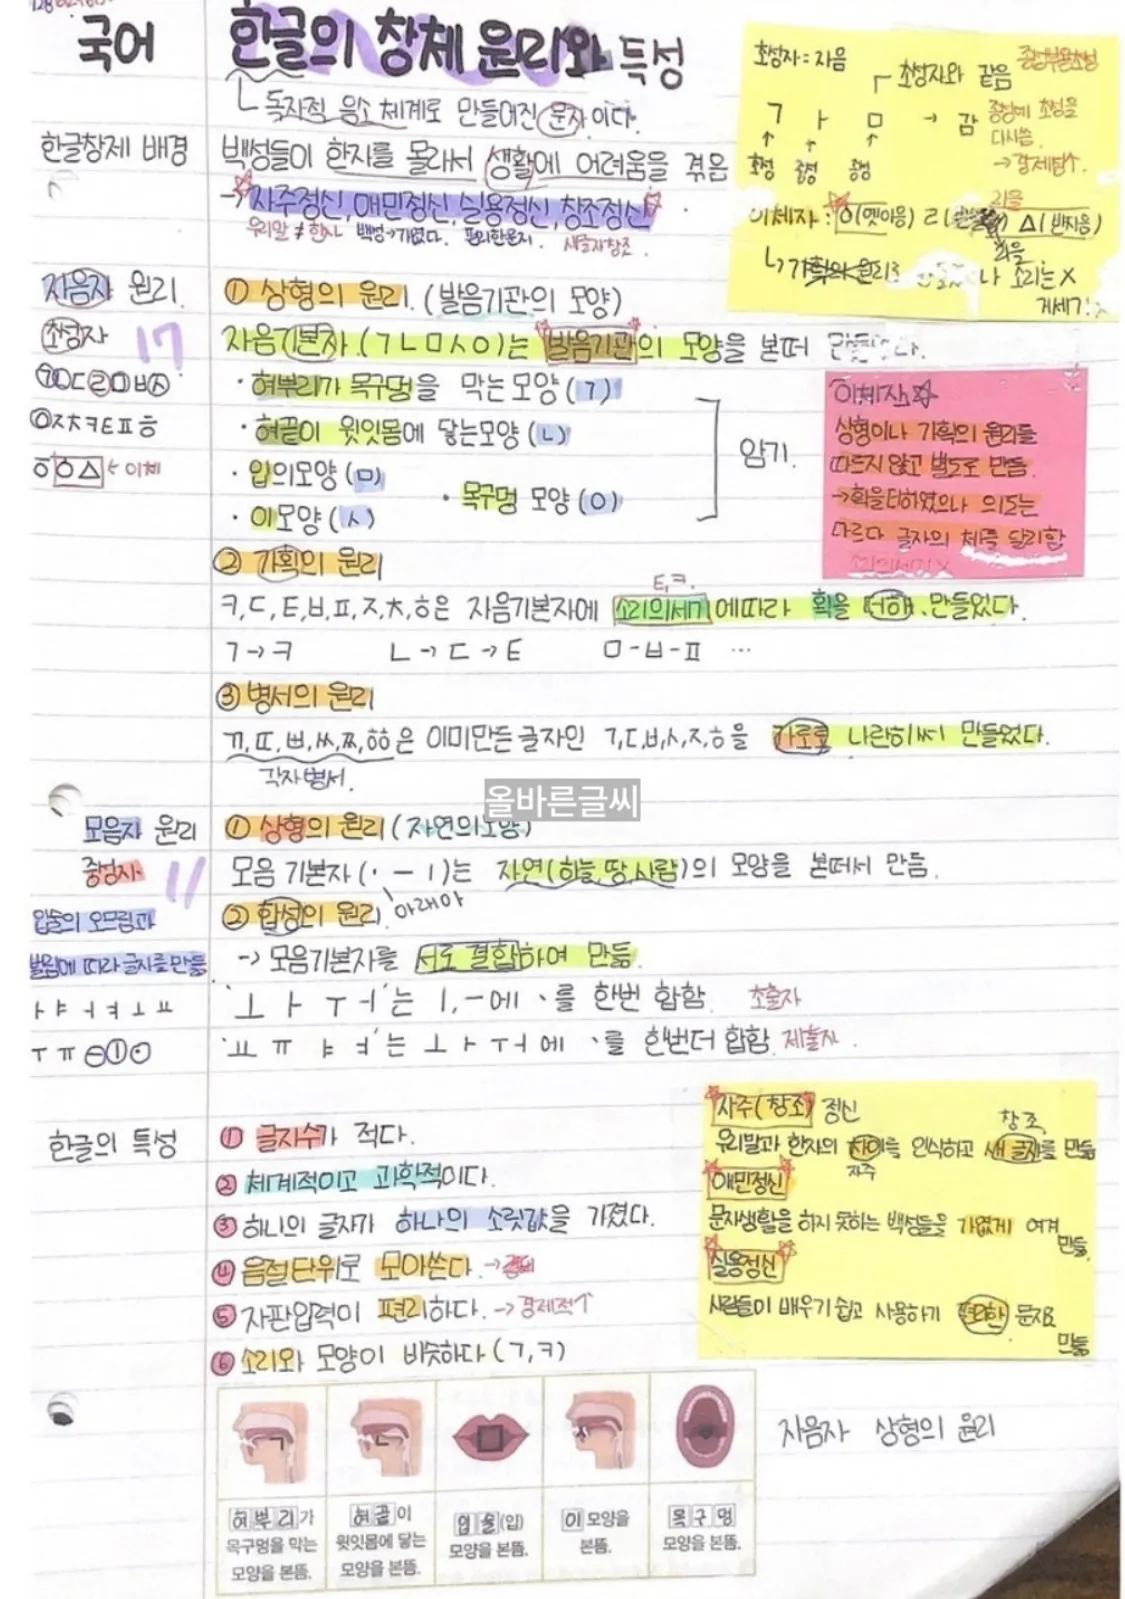 국어
한글의 창체 원리와 특성
ㄴ 독자적 음소 체계로 만들어진 문자이다.
한글창제 배경
백성들이 한자를 몰라서 생활에 어려움을 겪음
→ 자주정신, 애민정신, 실용정신, 창조정신
우리말 ≠ 한자 백성→가엽다. 편리한문자. 새글자창조.
초성자 = 자음
초성자와 같음
종성부용초성
ㄱ ㅏ ㅁ → 감
초성 중성 종성
종성에 초성을
다시씀.
→ 경제성↑.
이체자 : ㆁ(옛이응) ㄹ ㅿ(반치음)
소리는 X
자음자 원리.
① 상형의 원리. (발음기관의 모양)
초성자 17
자음기본자.(ㄱㄴㅁㅅㅇ)는 발음기관의 모양을 본떠 만들었다.
ㄱㄴㄷㄹㅁㅂㅅ
ㅇㅈㅊㅋㅌㅍㅎ
ㆆㆁㅿ ← 이체
· 혀뿌리가 목구멍을 막는모양(ㄱ)
· 혀끝이 윗잇몸에 닿는모양(ㄴ)
· 입의모양(ㅁ)
· 목구멍 모양(ㅇ)
· 이모양(ㅅ)
암기.
이체자☆
상형이나 가획의 원리를
따르지 않고 별도로 만듦.
→획을더하였으나 의도는
다르다 글자의 체를 달리함
② 가획의 원리
ㅌ,ㅋ.
ㅋ,ㄷ,ㅌ,ㅂ,ㅍ,ㅈ,ㅊ,ㅎ은 자음기본자에 소리의세기에따라 획을 더해 만들었다.
ㄱ→ㅋ ㄴ→ㄷ→ㅌ ㅁ-ㅂ-ㅍ …
③ 병서의 원리
ㄲ,ㄸ,ㅃ,ㅆ,ㅉ,ㆅ은 이미만든글자인 ㄱ,ㄷ,ㅂ,ㅅ,ㅈ,ㅎ을 가로로 나란히써 만들었다.
각자병서.
올바른글씨
모음자 원리
① 상형의 원리 (자연의모양)
중성자 11
모음 기본자(· ㅡ ㅣ)는 자연(하늘,땅,사람)의 모양을 본떠서 만듦.
아래아
입술의 오므림과
벌림에 따라 글자를 만듦
② 합성의 원리
→ 모음기본자를 서로 결합하여 만듦.
ㅏ ㅑ ㅓ ㅕ ㅗ ㅛ
ㅜ ㅠ ㅡ ㅣ ·
'ㅗ ㅏ ㅜ ㅓ'는 ㅣ,ㅡ에 ㆍ를 한번 합함. 초출자
'ㅛ ㅠ ㅑ ㅕ'는 ㅗ ㅏ ㅜ ㅓ에 ㆍ를 한번더 합함. 재출자.
한글의 특성
① 글자수가 적다.
② 체계적이고 과학적이다.
③ 하나의 글자가 하나의 소릿값을 가졌다.
④ 음절단위로 모아쓴다. →
⑤ 자판입력이 편리하다. → 경제적↑
⑥ 소리와 모양이 비슷하다 (ㄱ,ㅋ)
자주(창조) 정신
창조
우리말과 한자의 차이를 인식하고 새 글자를 만듦
자주
애민정신
문자생활을 하지 못하는 백성들을 가엾게 여겨
만듦.
실용정신
사람들이 배우기 쉽고 사용하기 편리한 문자로
만듦
자음자 상형의 원리
혀뿌리가
목구멍을 막는
모양을 본뜸.
혀끝이
윗잇몸에 닿는
모양을 본뜸.
입술(입)
모양을 본뜸.
이 모양을
본뜸.
목구멍
모양을 본뜸.